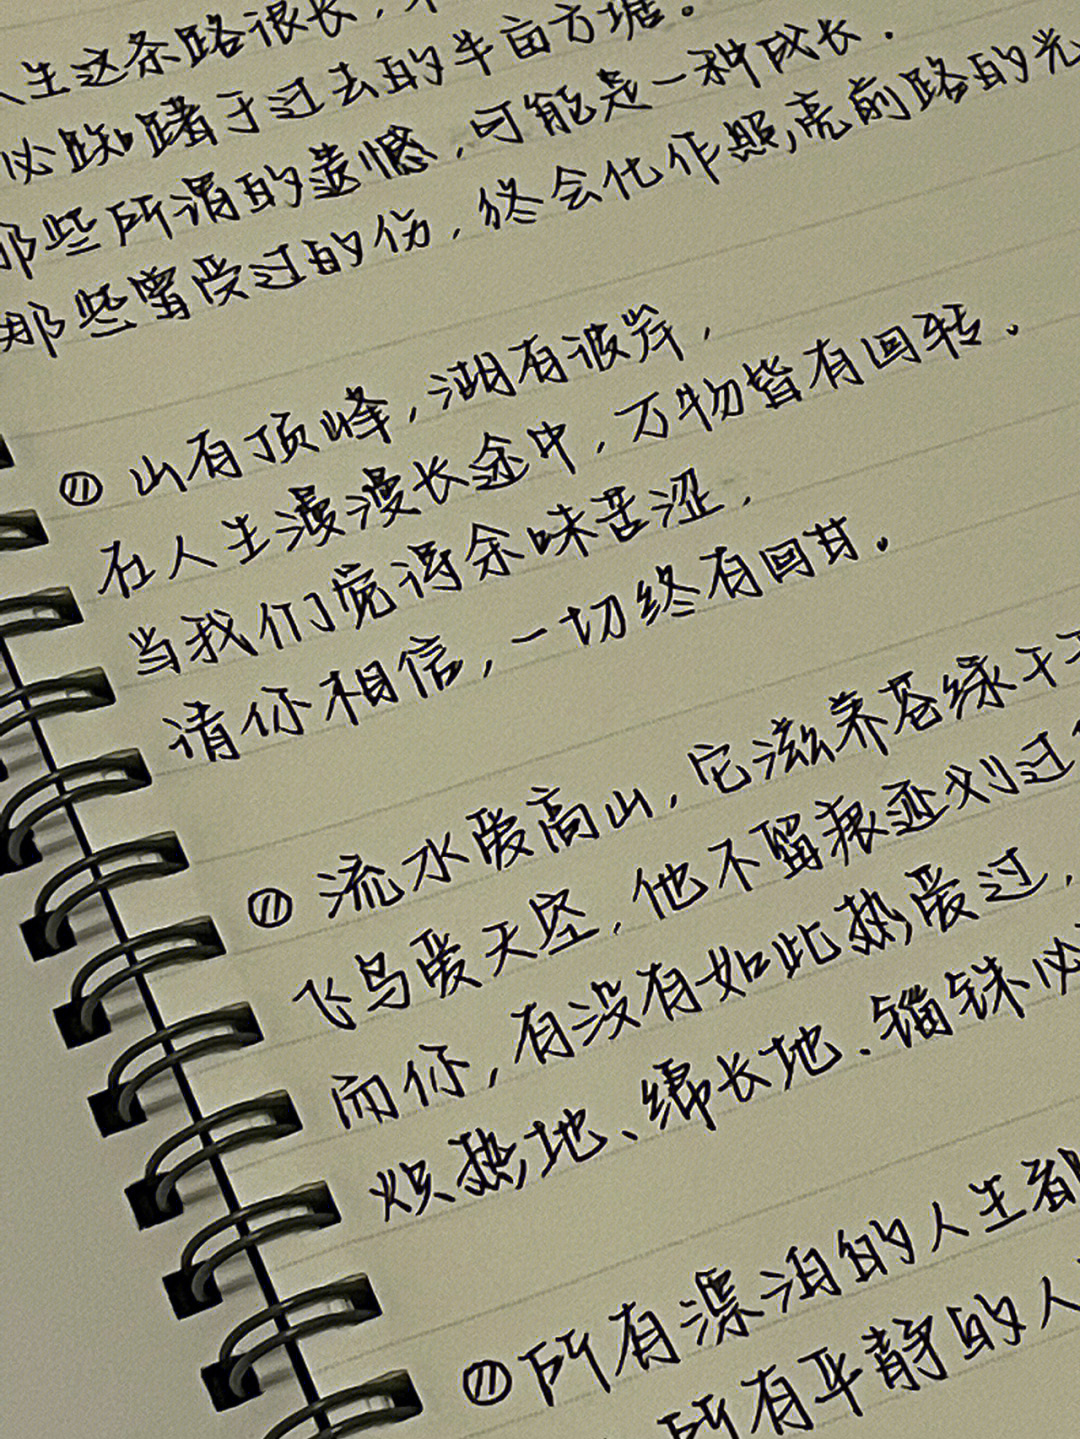 人生这条路很长，
必踟躇于过去的半亩方塘。
那些所谓的遗憾，可能是一种成长．
那些曾受过的伤，终会化作照亮前路的光
山有顶峰，湖有彼岸，
在人生漫漫长途中，万物皆有回转。
当我们觉得余味苦涩，
请你相信，一切终有回甘。
流水爱高山，它滋养苍绿千
飞鸟爱天空，他不留痕迹划过
而你，有没有如此热爱过，
炽热地、绵长地．锱铢必
所有漂泊的人生都
所有平静的人